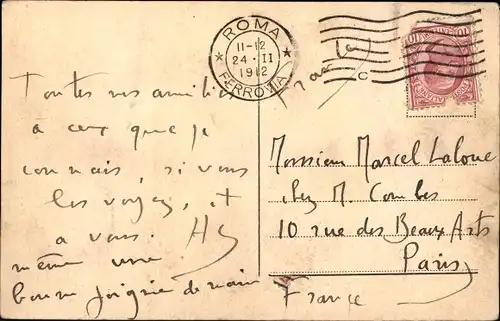 ROMA
11-12
24·II
1912
FERROVIA
France
C
10
Toutes vos amitiés
à ceux que je
connais, si vous
les voyez, et
à vous.
même une
bonne poignée de main
Monsieur Marcel Laloue
chez M. Combes
10 rue des Beaux Arts
Paris
France